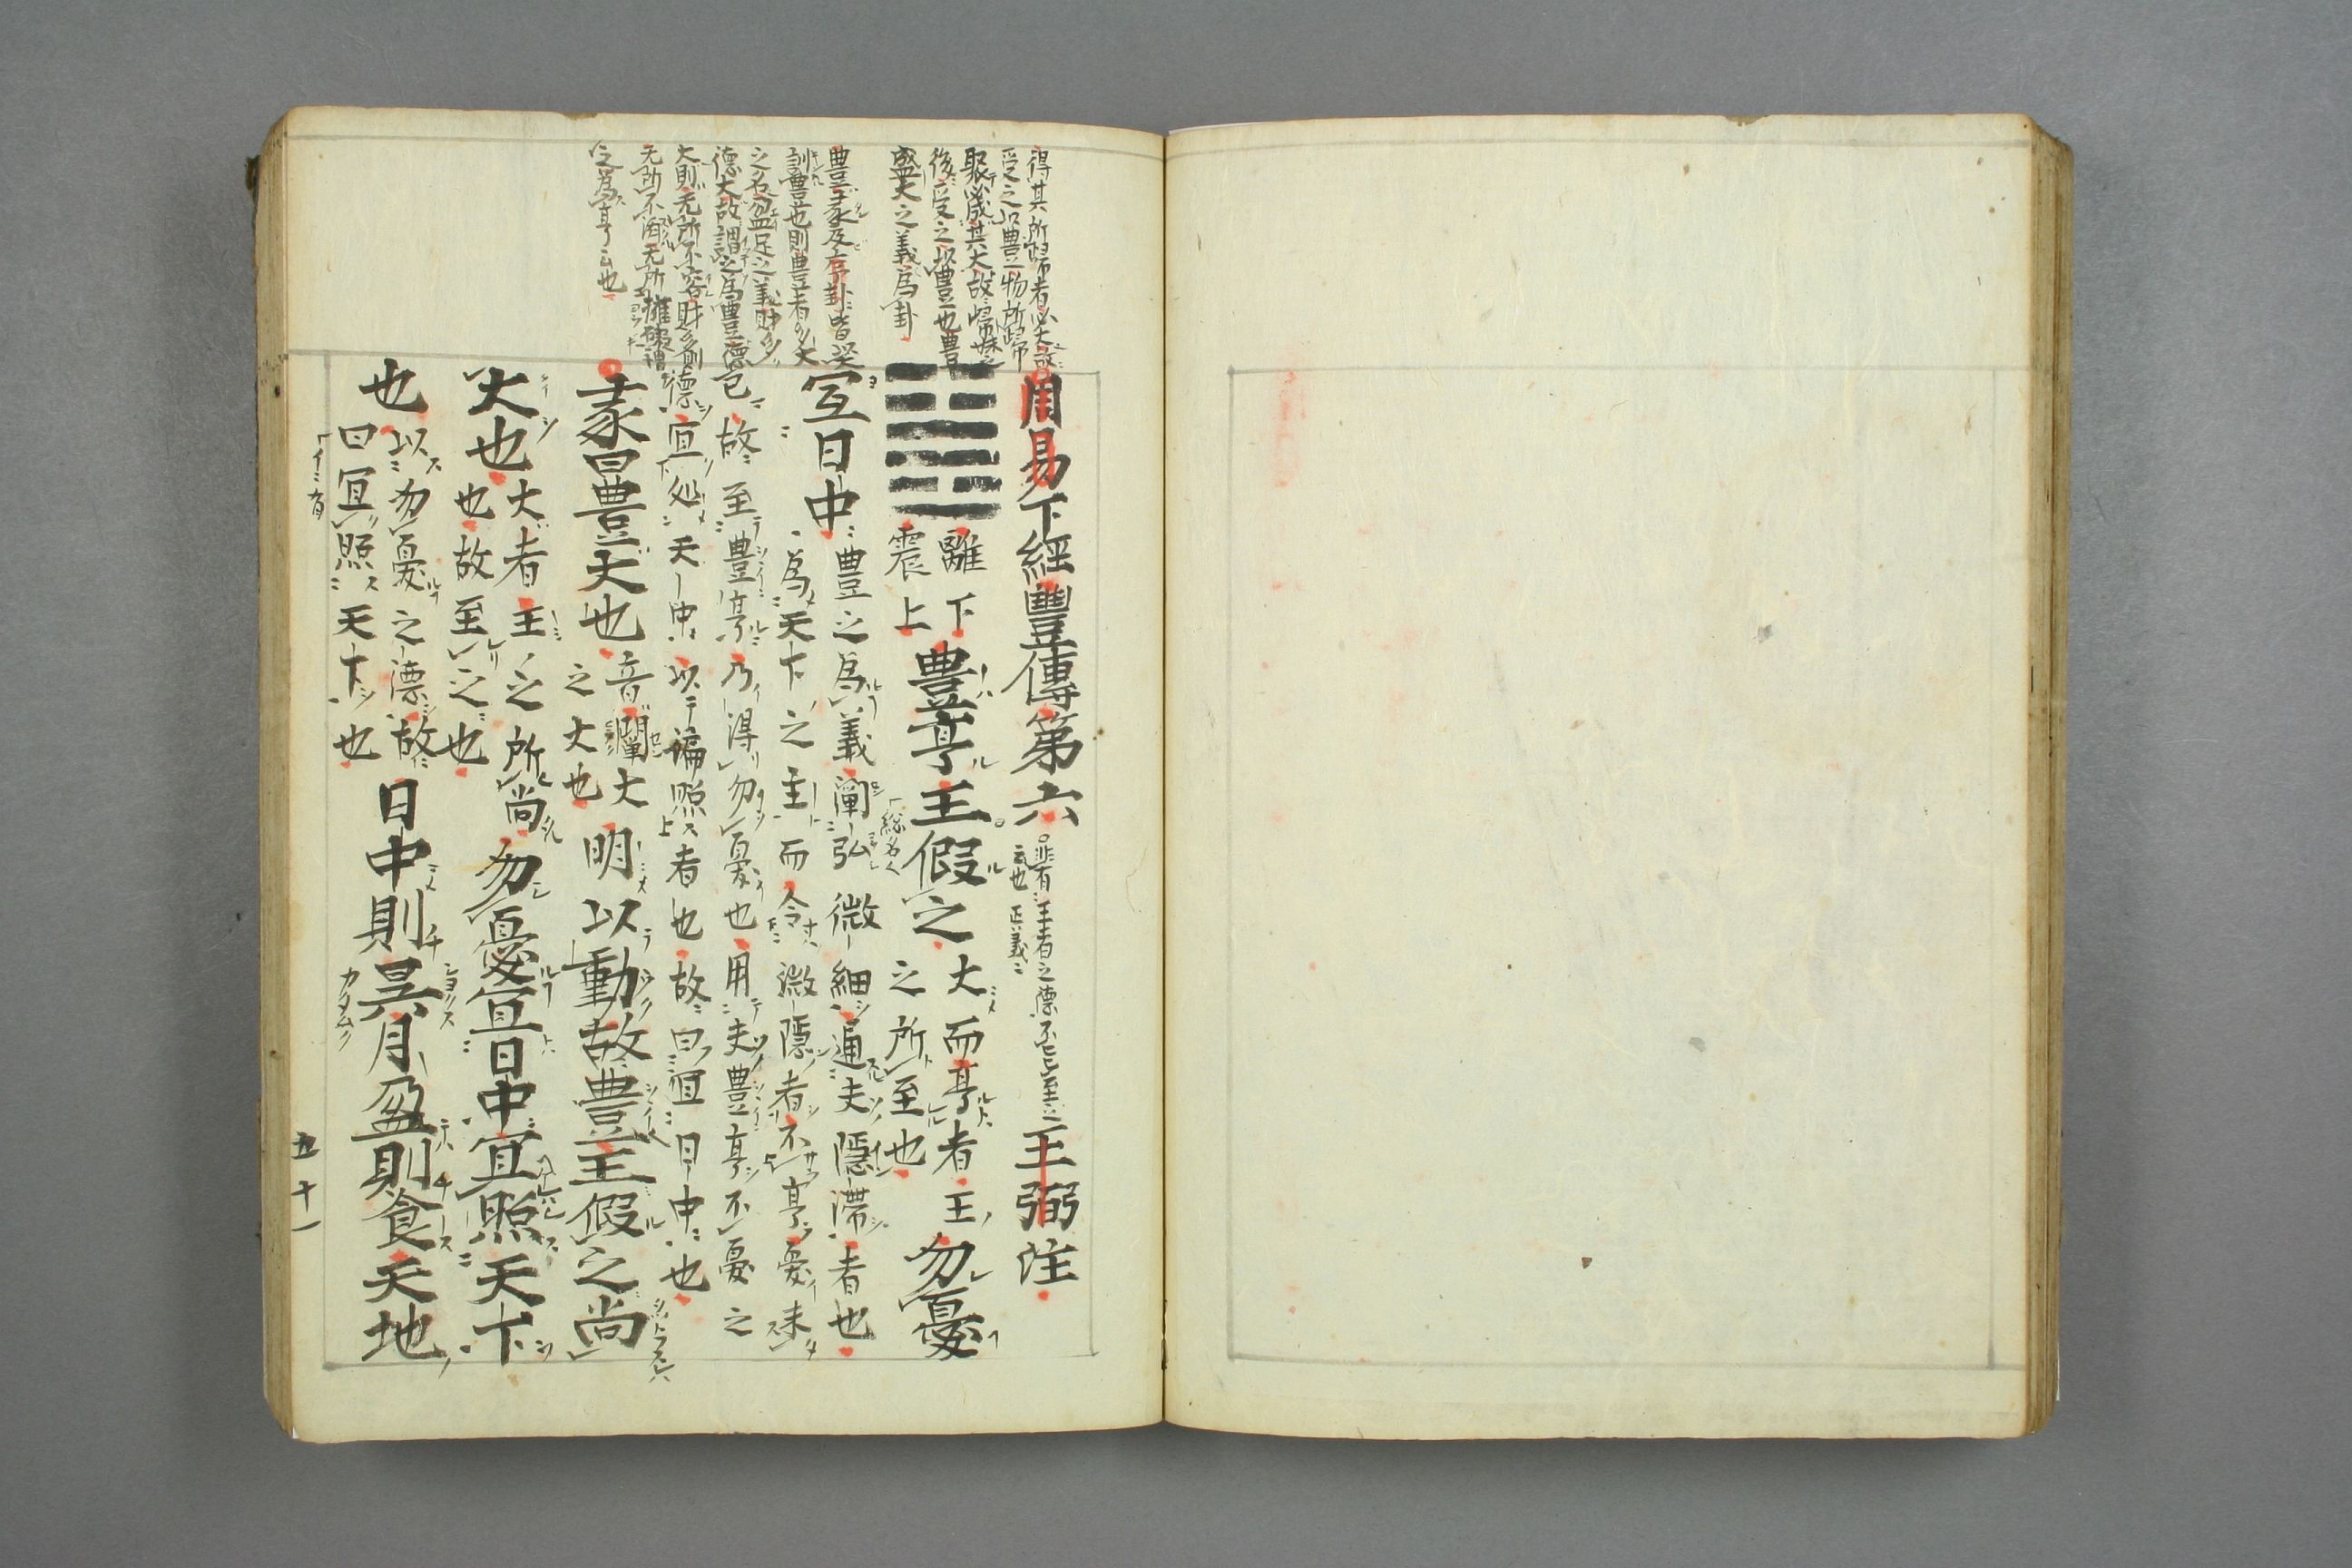 得其所歸者必大故
受之以豊物所歸
聚必成其大故歸妹之
後受之以豊也豊
盛大之義爲卦
豊彖及序卦皆
訓豊也則豊者多大
之名盈足之義財多
德大故謂之爲豊德
大則无所不容財多則
无所不濟无所擁礙謂
之爲亨云也
周易下經豐傳第六
王者之德不已至
云也 正義
王弼注
離下
震上
豊亨王假之
大而亨者王
之所至也
勿憂
宜日中
豊之爲義闡弘微細通夫隱滯者也
爲天下之主而令微隱者不亨憂未
已故至豊亨乃得勿憂也用夫豊亨不憂之
德宜処天中以遍照者也故曰宜日中也
彖曰豊大也
音闡大
之大也
明以動故豊王假之尚
大也
大者王之所尚
也故至之也
勿憂宜日中宜照天下
也
以勿憂之德故
曰宜照天下也
日中則昃月盈則食天地
五十一